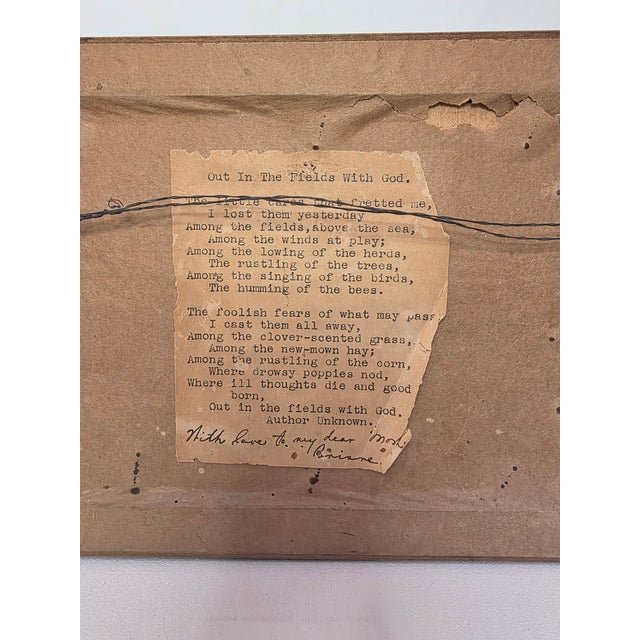 Out In The Fields With God.
The little cares that fretted me,
I lost them yesterday
Among the fields,above the sea,
Among the winds at play;
Among the lowing of the herds,
The rustling of the trees,
Among the singing of the birds,
The humming of the bees.
The foolish fears of what may pass
I cast them all away,
Among the clover-scented grass,
Among the new-mown hay;
Among the rustling of the corn,
Where drowsy poppies nod,
Where ill thoughts die and good
born,
Out in the fields with God.
Author Unknown.
With love to my dear
Corinne